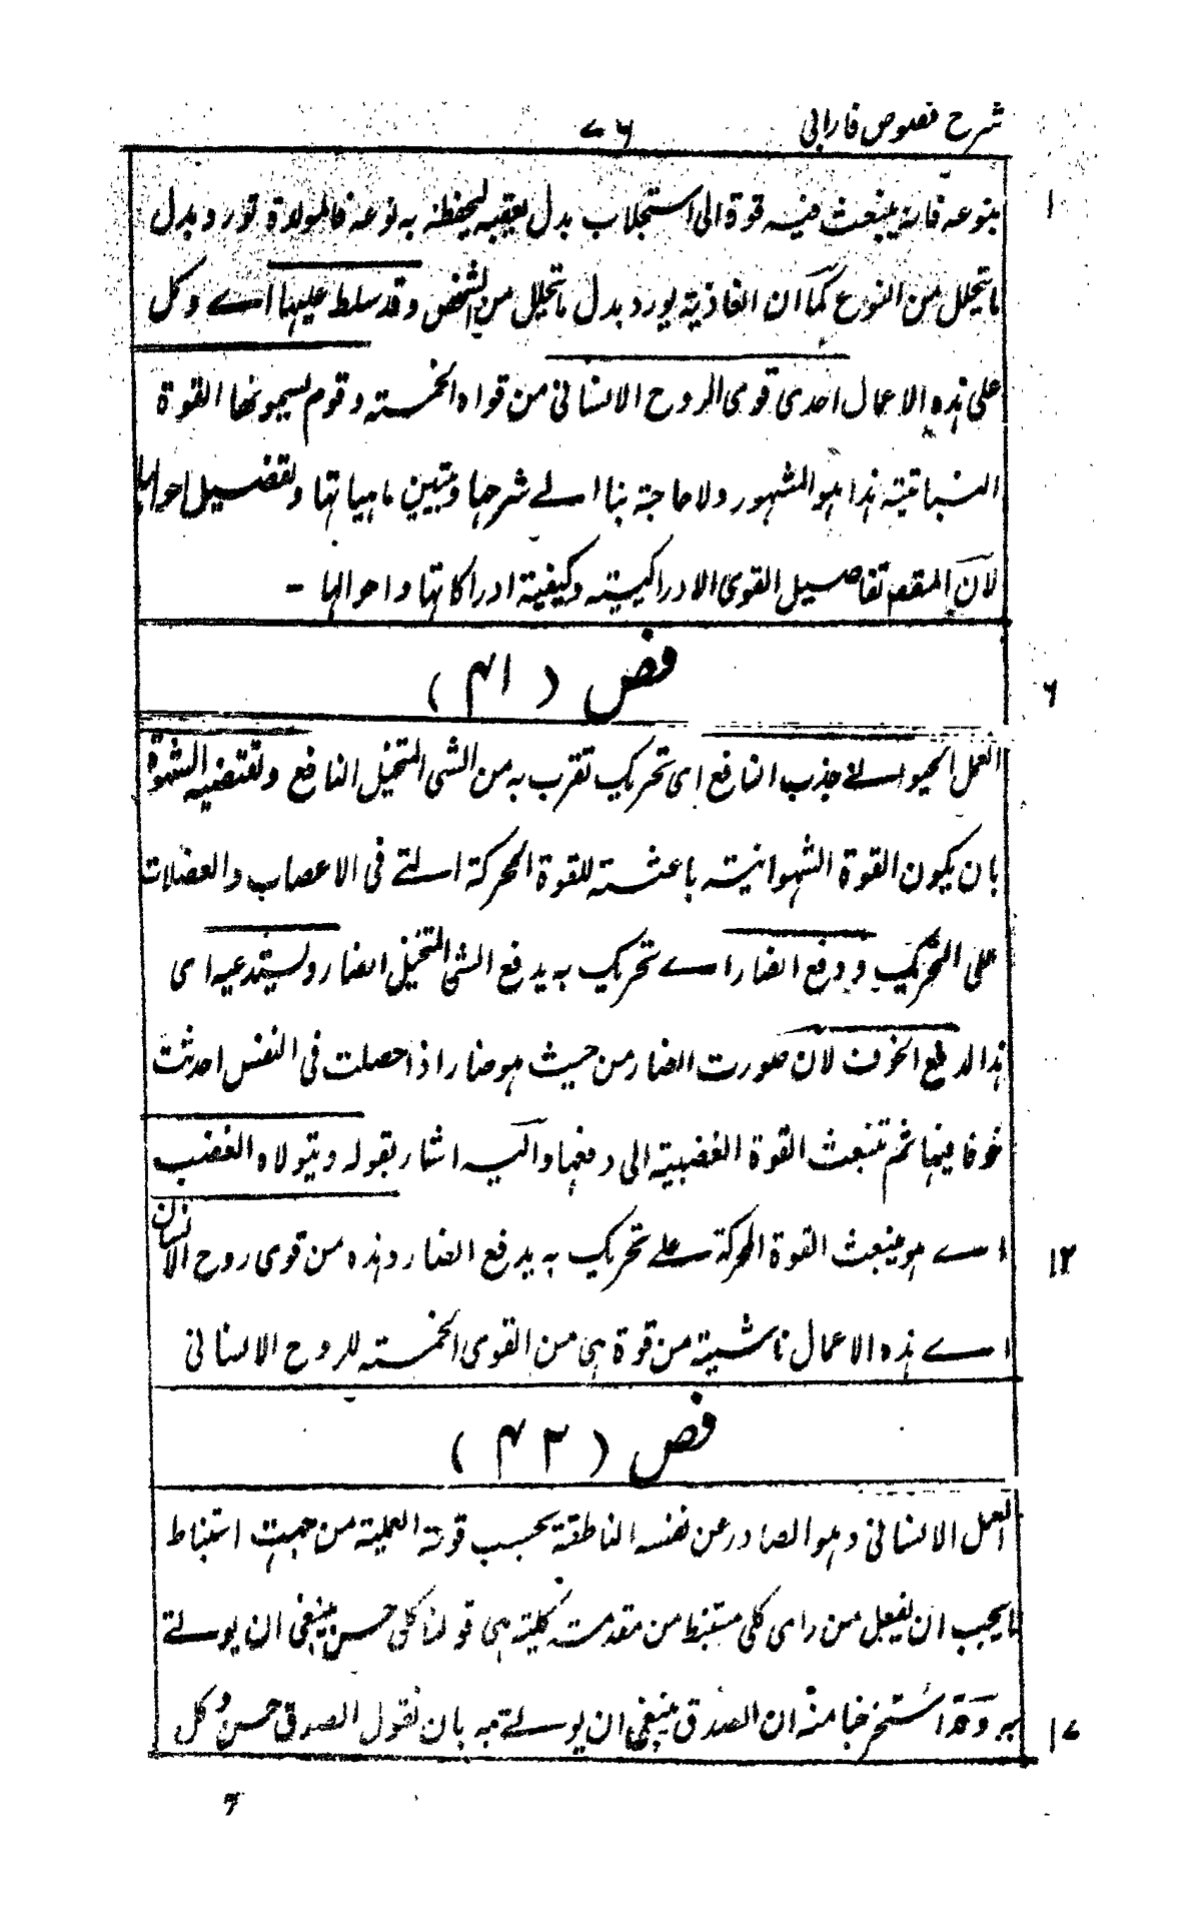 شرح فصوص فارابی
۷۶
بنوعه فانه ینبعث فیه قوة الی استجلاب بدل یعقبه لیحفظ به نوعه فالمولدة تورد بدل
۱
ما یتحلل من النوع کما ان الغاذیة یورد بدل ما یتحلل من الشخص وقد سلط علیها اے وکل
علی هذه الاعمال احدی قوی الروح الانسانی من قواه الخمسته وقوم یسمونها القوة
النباتیته هذا هو المشهور ولا حاجة بنا الے شرحها وتبیین ماهیاتها وتفصیل احوالها
لان المقصم تفاصیل القوی الادراکیته وکیفیة ادراکاتها واحوالها -
فص (۴۱)
۶
العمل الحیوانے جذب النافع ای تحریک تقرب به من الشی المتخیل النافع وتقتضیه الشهوة
بان یکون القوة الشهوانیته باعثته للقوة المحرکة التے فی الاعصاب والعضلات
علی التحریک ودفع الضار اے تحریک به یدفع الشی المتخیل الضار ویستدعیه ای
هذا الدفع الخوف لان صورت الضار من حیث هو ضار اذا حصلت فی النفس احدثت
خوفا فیها ثم تنبعث القوة الغضبیة الی دفعها والیه اشار بقوله ویتولاه الغضب
اے هو ینبعث القوة المحرکة علے تحریک به یدفع الضار وهذه من قوی روح الانسان
۱۲
اے هذه الاعمال ناشیته من قوة هی من القوی الخمسته للروح الانسانی
فص (۴۲)
العمل الانسانی وهو الصادر عن نفسه الناطقة بحسب قوته العملیة من جهت استنباط
ما یجب ان یفعل من رای کلی مستنبط من مقدمته کلیته هی قولنا کل حسن ینبغی ان یوتے
به وقد استخرجنا منه ان الصدق ینبغی ان یوتے به بان نقول الصدق حسن وکل
۱۷